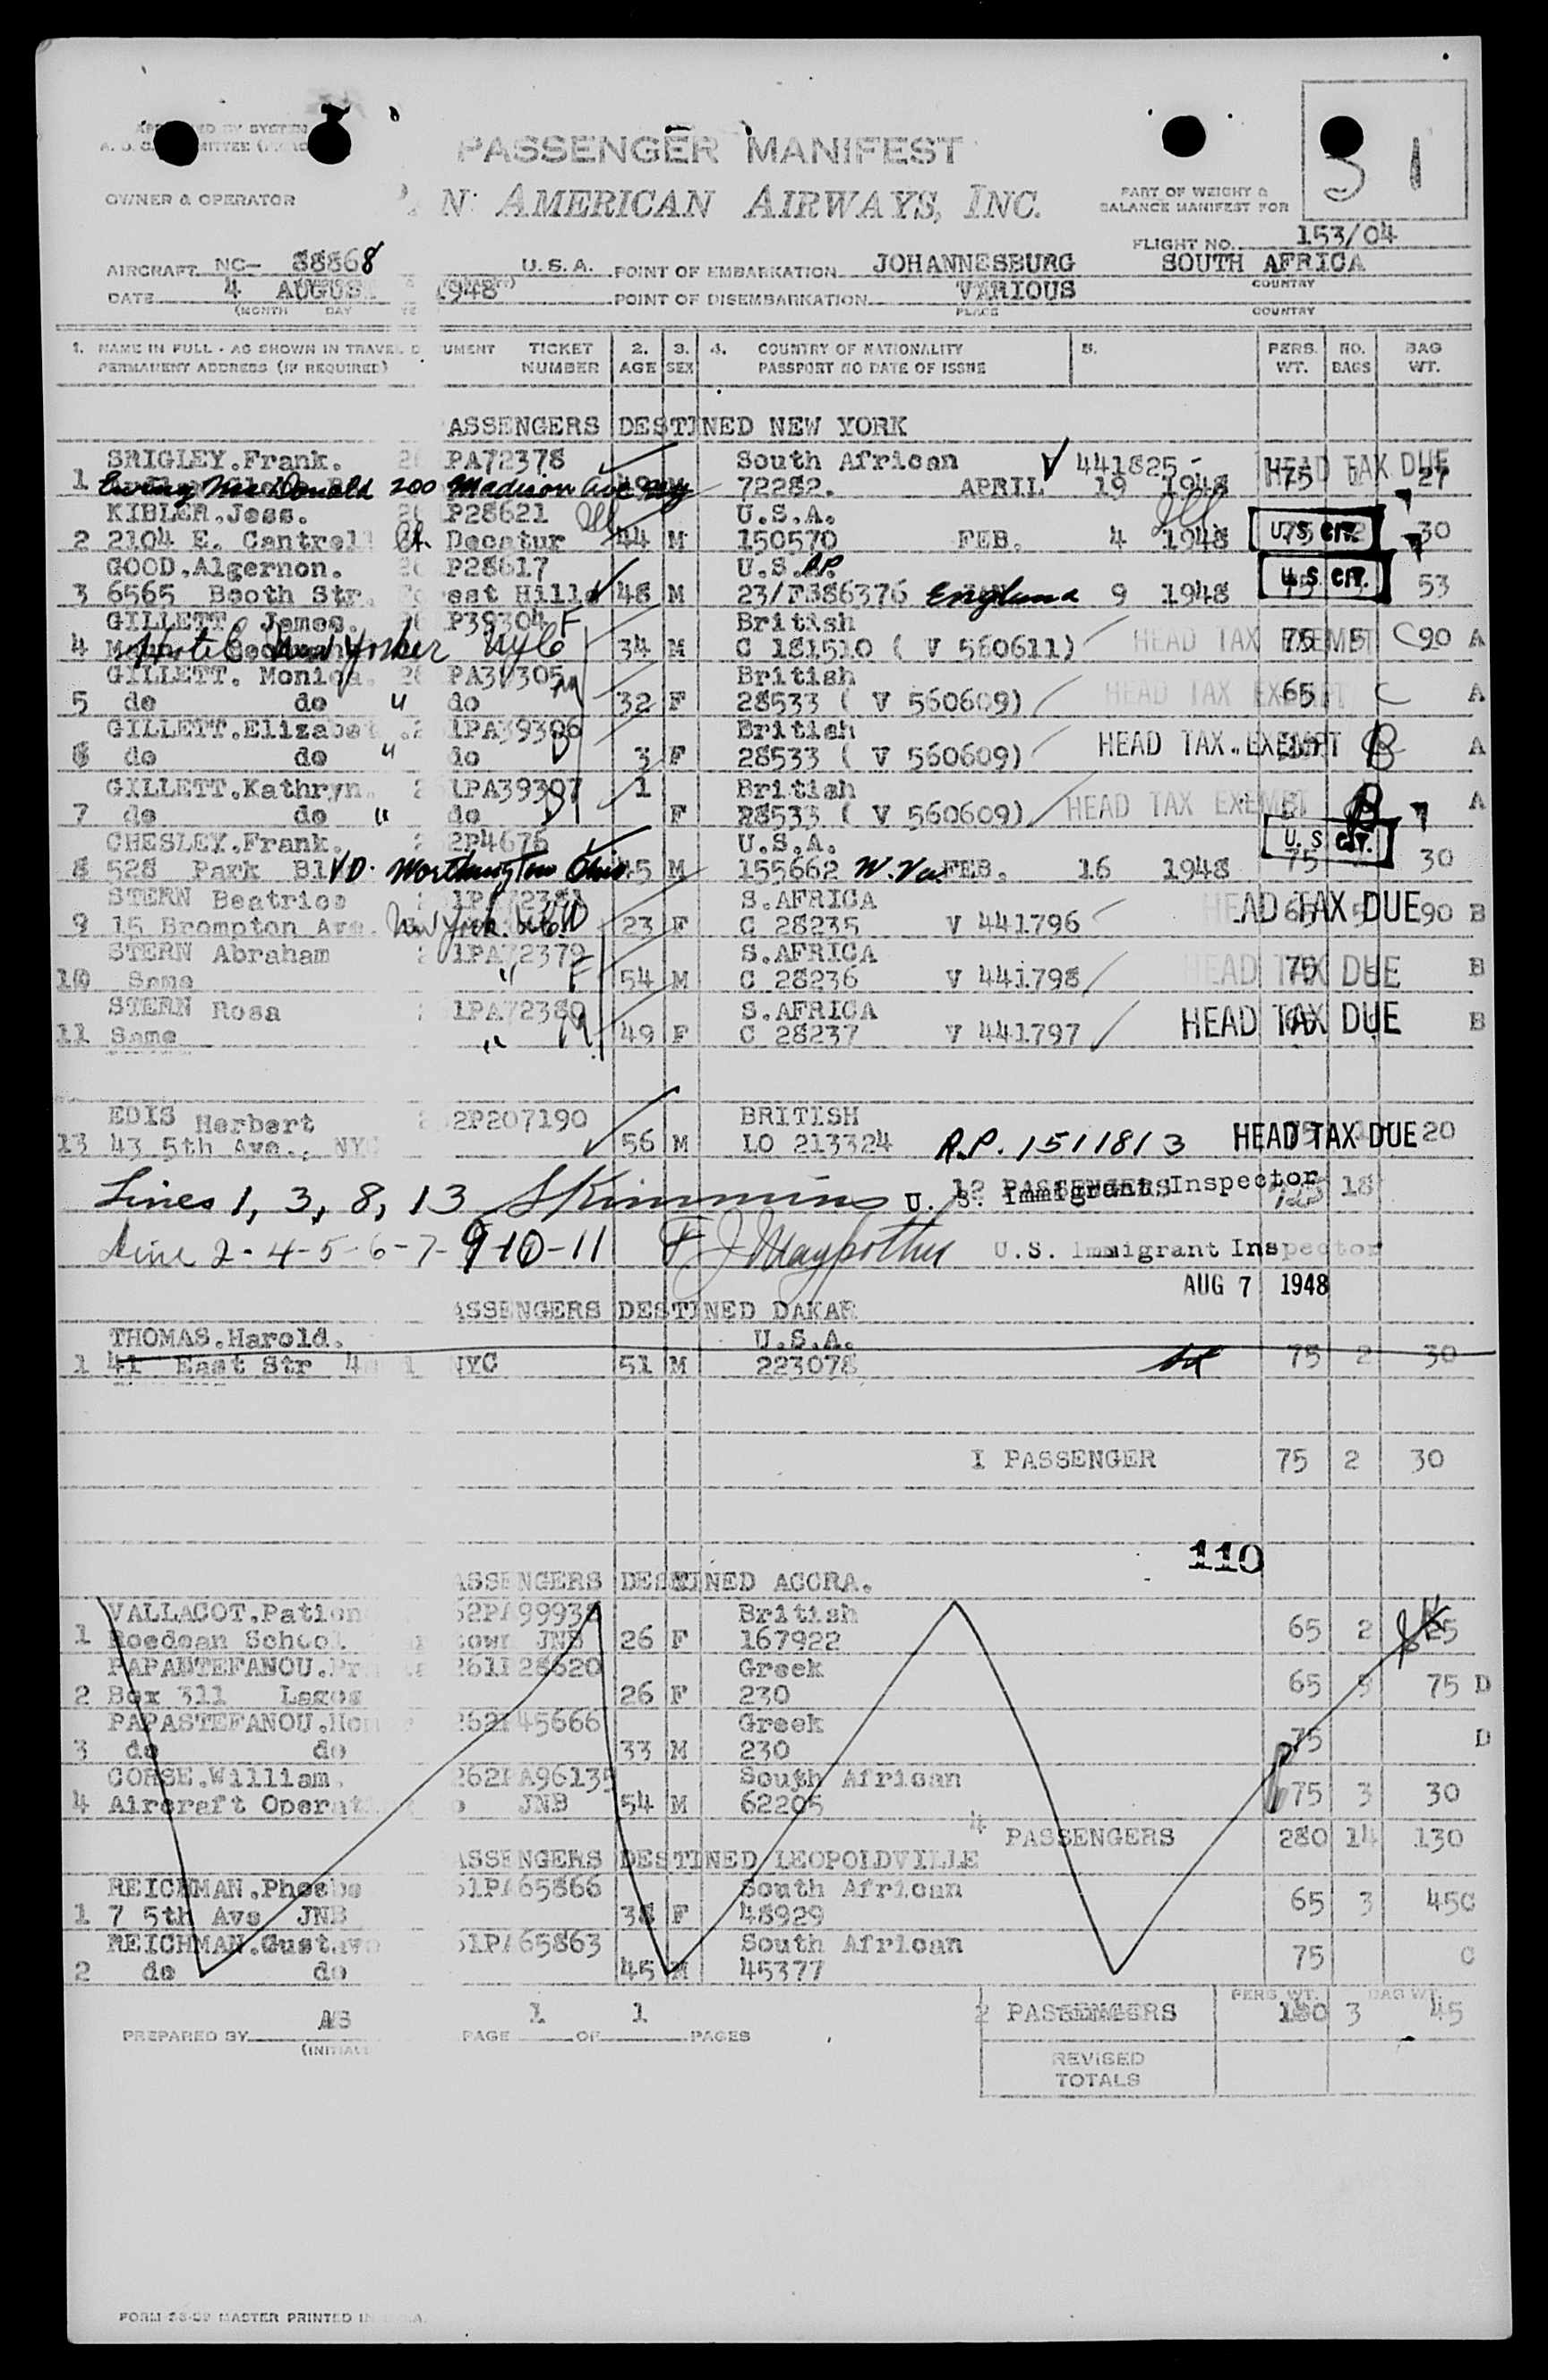 31
PASSENGER MANIFEST
OWNER & OPERATOR
AMERICAN AIRWAYS, INC.
PART OF WEIGHT &
BALANCE MANIFEST FOR
FLIGHT NO. 153/04
AIRCRAFT NC- 88868 U.S.A. POINT OF EMBARKATION JOHANNESBURG SOUTH AFRICA
COUNTRY
DATE 4 AUGUS 1948 POINT OF DISEMBARKATION VARIOUS
(MONTH DAY PLACE COUNTRY
1. NAME IN FULL - AS SHOWN IN TRAVEL DOCUMENT TICKET 2. 3. 4. COUNTRY OF NATIONALITY 5. PERS. NO. BAG
PERMANENT ADDRESS (IF REQUIRED) NUMBER AGE SEX PASSPORT NO DATE OF ISSUE WT. BAGS WT.
ASSENGERS DESTINED NEW YORK
SRIGLEY.Frank. PA72378 South African V 441825- HEAD TAX DUE
1 Ewing McDonald 200 Madison Ave 72282. APRIL 19 1948 75 27
KIBLER.Jess. P28621 U.S.A.
2 2104 E. Cantrell St. Decatur 44 M 150570 FEB. 4 1948 U.S. CIT. 30
GOOD.Algernon. P28617 U.S.
3 6565 Booth Str. est Hills 48 M 23/F386376 England 9 1948 U.S. CIT. 53
GILLETT James. P39304 F British
4 Hotel New Yorker NYC 34 M C 181510 ( V 560611) HEAD TAX EXEMPT 75 5 C90 A
GILLETT. Monica. PA39305 M British
5 do do " do 32 F 28533 ( V 560609) HEAD TAX EXEMPT 65 C A
GILLETT.Elizabet 1PA39306 British
6 do do " do 3 F 28533 ( V 560609) HEAD TAX EXEMPT B A
GILLETT.Kathryn. 1PA39307 1 British
7 do do " do F 28533 ( V 560609) HEAD TAX EXEMPT B A
CHESLEY.Frank. 2P4676 U.S.A. U.S. CIT.
8 528 Park BlVD. Worthington Ohio 45 M 155662 W.Va. FEB. 16 1948 75 30
STERN Beatrice 1PA72381 S.AFRICA
9 15 Brompton Ave. New York 23 F C 28235 V 441796 HEAD TAX DUE 65 5 90 B
STERN Abraham 1PA72379 S.AFRICA
10 Same " F 54 M C 28236 V 441798 HEAD TAX DUE 75 B
STERN Rosa 1PA72380 S.AFRICA
11 Same " M 49 F C 28237 V 441797 HEAD TAX DUE B
EDIS Herbert 2P207190 BRITISH
13 43 5th Ave., NYC 56 M LO 213324 R.P. 1511813 HEAD TAX DUE 20
12 PASSENGERS 18
Lines 1, 3, 8, 13 U. S. Immigrant Inspector
Line 2-4-5-6-7-9-10-11 U.S. Immigrant Inspector
AUG 7 1948
ASSENGERS DESTINED DAKAR
THOMAS.Harold. U.S.A.
1 41 East Str 4 NYC 51 M 223078 75 2 30
1 PASSENGER 75 2 30
110
ASSENGERS DESTINED ACCRA.
VALLACOT.Patien 62PA9993 British
1 Roedean School town JNB 26 F 167922 65 2 25
PAPASTEFANOU. 261P28620 Greek
2 Box 311 Lagos 26 F 230 65 75 D
PAPASTEFANOU. 262P45666 Greek
3 do do 33 M 230 75 D
CORSE.William. 262PA96135 South African
4 Aircraft Operat JNB 54 M 62205 75 3 30
4 PASSENGERS 280 14 130
ASSENGERS DESTINED LEOPOLDVILLE
REICHMAN.Phoebe 61PA65866 South African
1 7 5th Ave JNB 38 F 48929 65 3 45C
REICHMAN.Gustavo 61PA65863 South African
2 do do 45 M 45377 75 C
PERS WT. BAG WT.
2 PASSENGERS 3 45
PREPARED BY PAGE 1 OF 1 PAGES
(INITIAL
REVISED
TOTALS
FORM MASTER PRINTED IN